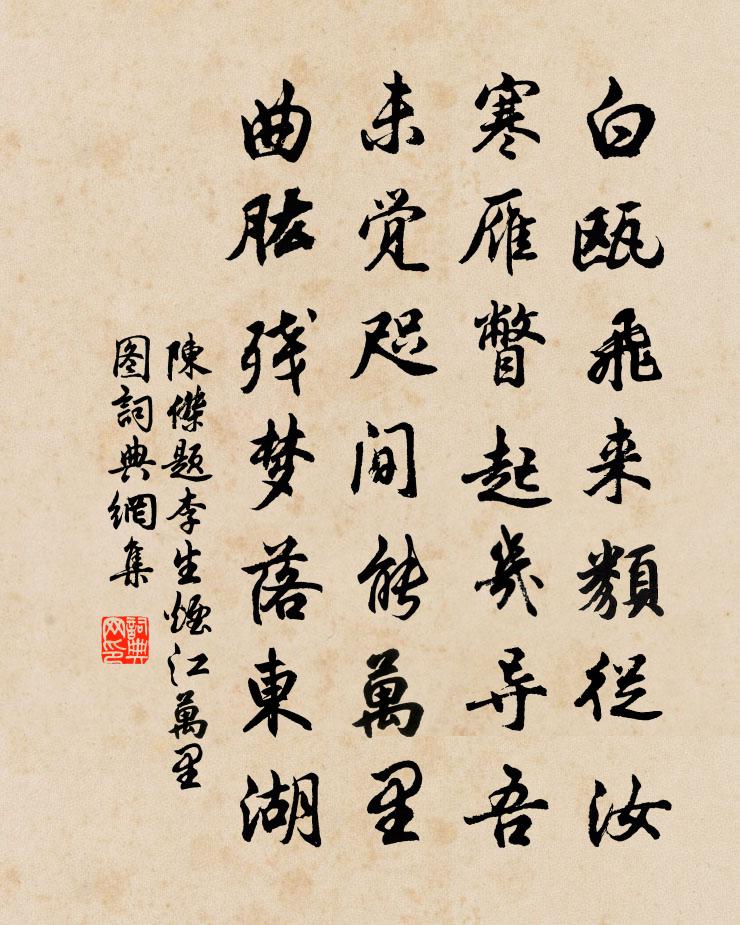 白瓯飛来類從汝
寒雁瞥起幾导吾
未觉咫间能萬里
曲肱残梦落東湖
陳傑题李生煙江萬里
图詞典網集
詞典网印